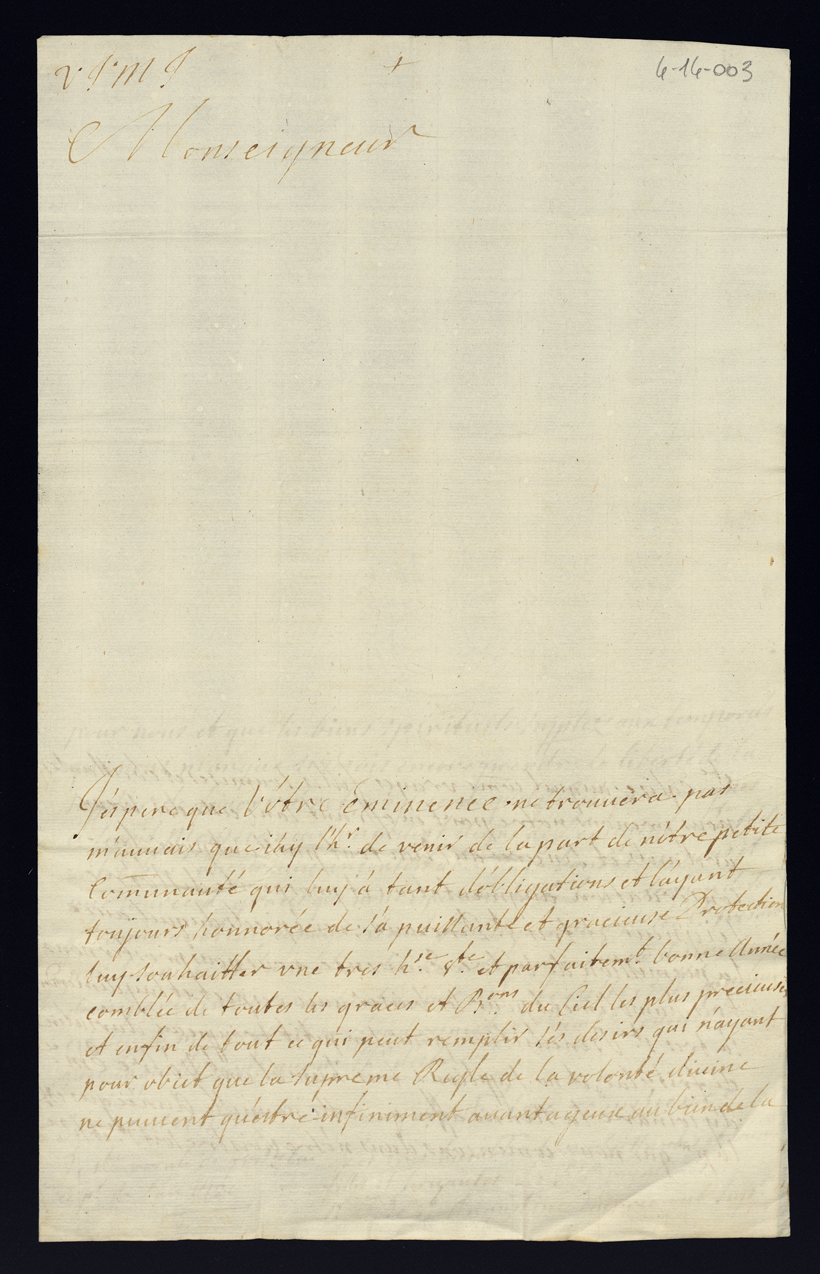 v. J. M. J
+
6-16-003
Monseigneur
J'espere que Vôtre Eminence ne trouuera pas
mauuais que i'ay l'hr. de venir de la part de nôtre petite
Com̄unauté qui luy a tant d'obligations et l'ayant
toujours honnorée de sa puissante et gracieuse Protection
luy souhaitter vne tres h.se s.te et parfaitem.t bonne Année
comblée de toutes les graces et B.ons du Ciel les plus precieuses
et enfin de tout ce qui peut remplir ses desirs qui n'ayant
pour obiet que la supreme Regle de la volonté diuine
ne puuent qu'estre infiniment auantageux au bien de la